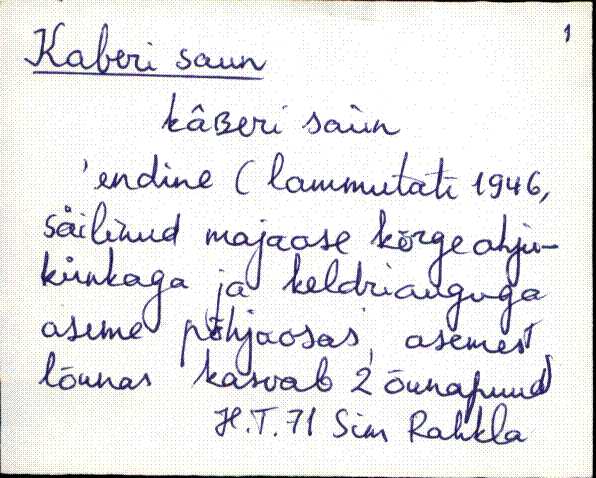 1
Kaberi saun
kâʙeri saùn
'endine (lammutati 1946,
säilinud majaase kõrge ahju-
künkaga ja keldriauguga
aseme põhjaosas, asemest
lõunas kasvab 2 õunapuud
H.T. 71 Sim Rahkla